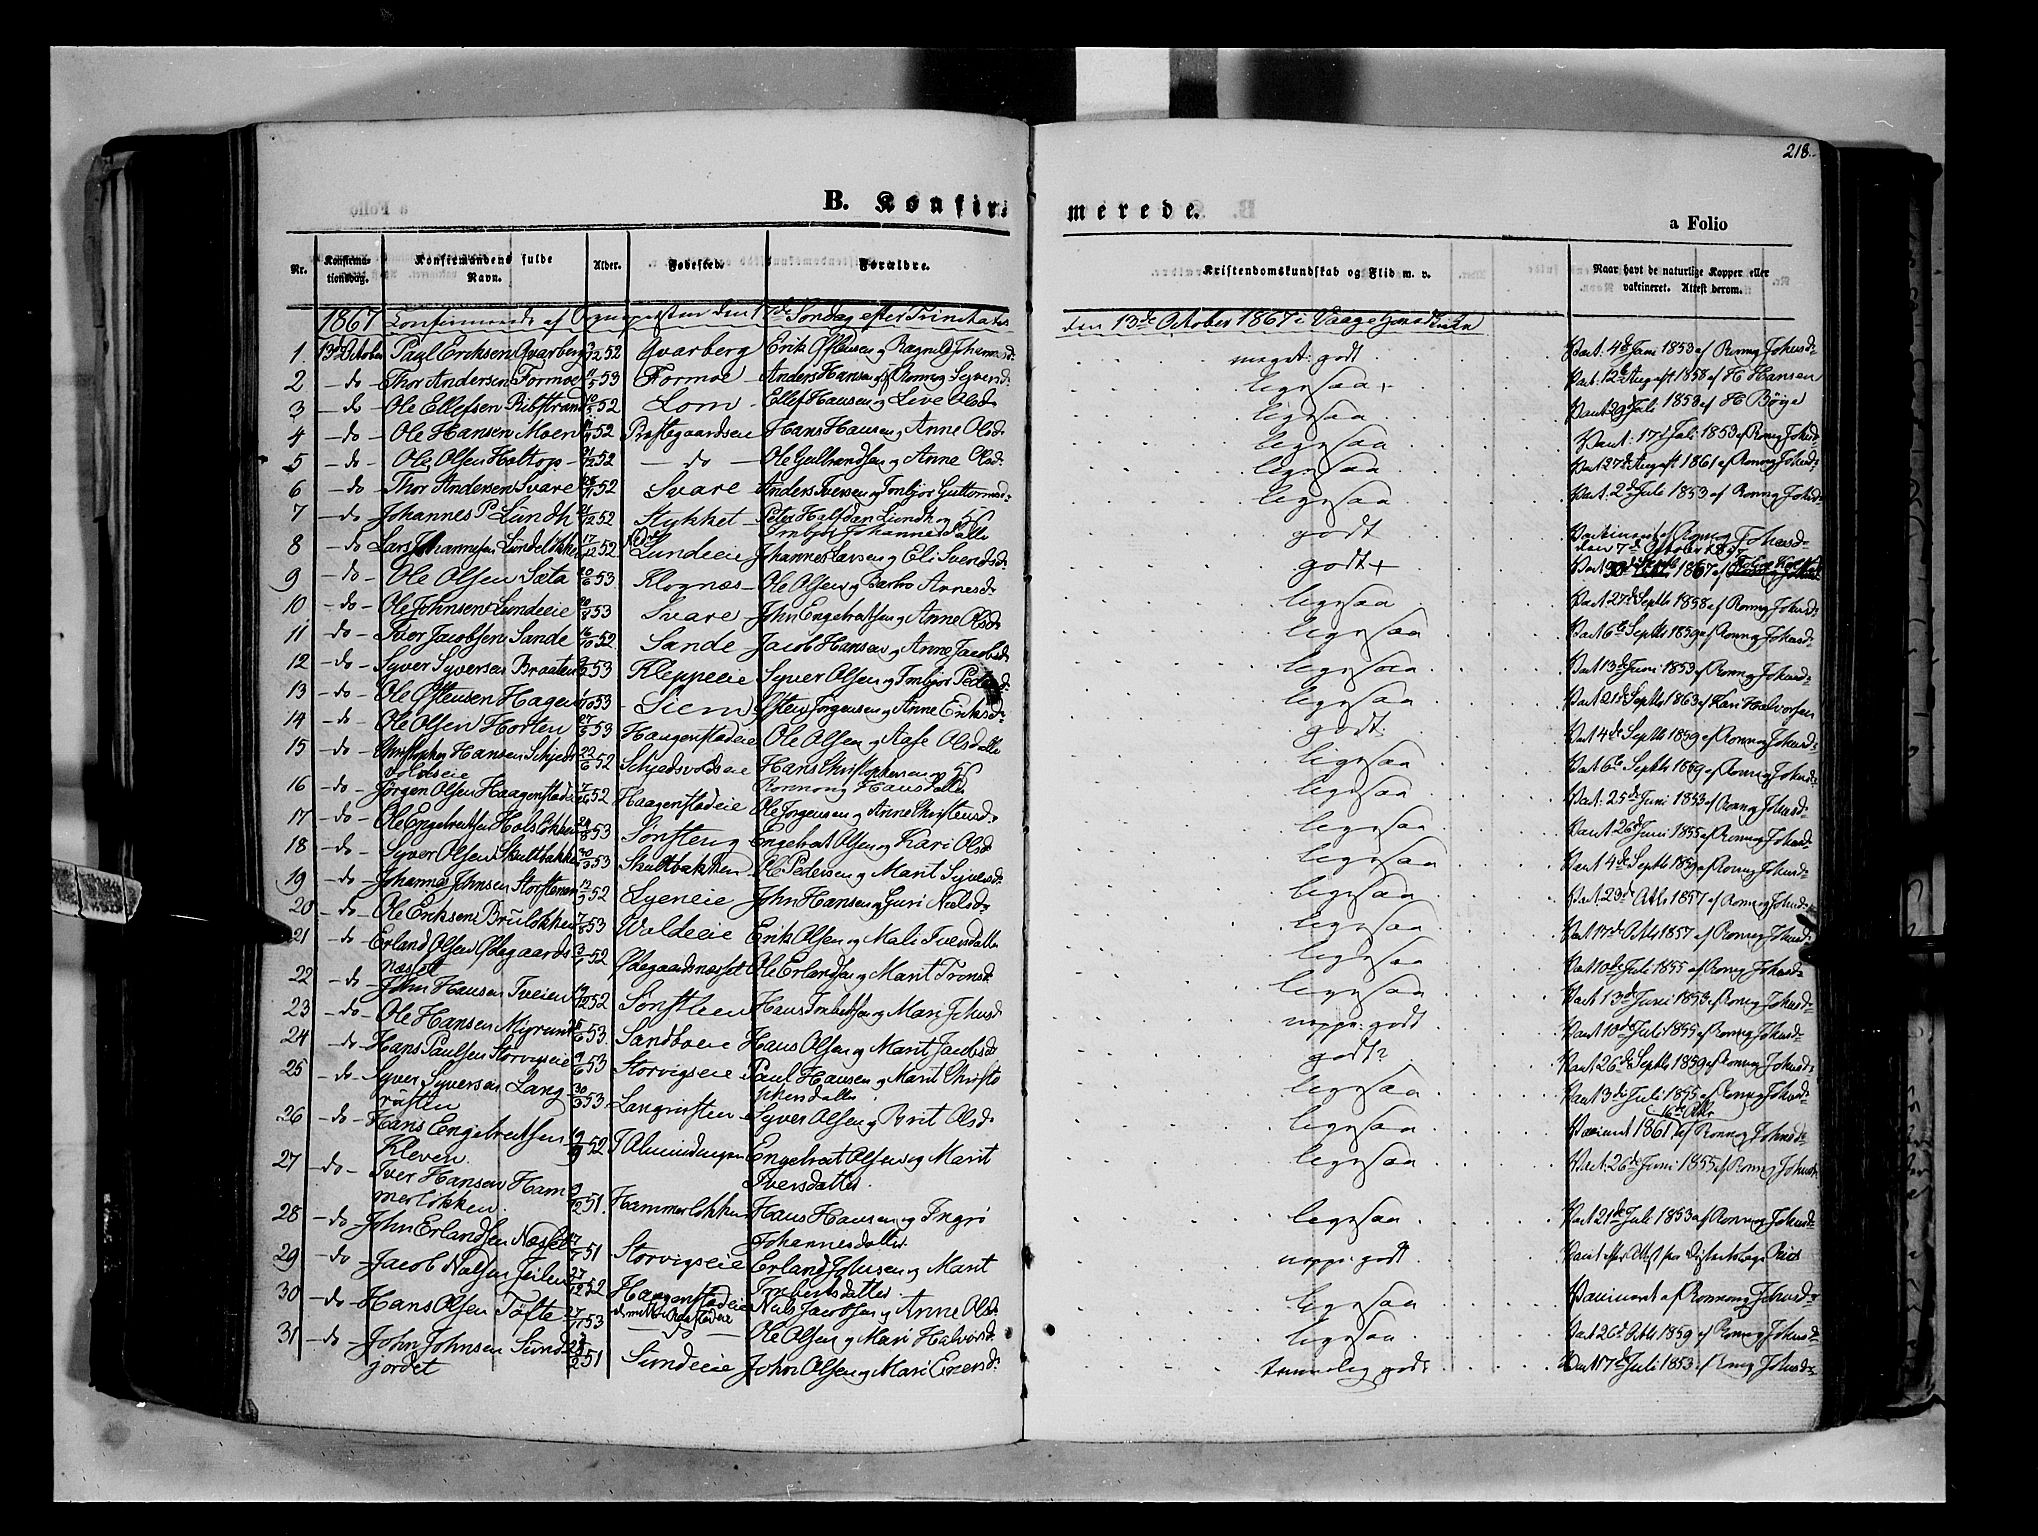 218.
B. Konfir-
merede.
a Folio
Nr. Konfirma-tionsdag. Konfirmandens fulde Navn. Alder. Fødested. Forældre.
Kristendomskundskab og Flid m. v. Naar havt de naturlige Kopper eller vakcineret. Attest derom.
1867 Confirmerede af Sognepresten den 17de Søndag efter Trinitatis
den 13de October 1867 i Vaage Hovedkirke
1 13de October Paul Eriksen Qvarberg 52 Qvarberg Erik Østensen og Ragnild Johannesd: meget godt Vact. 4de Juni 1853 af Rønnog Johnsd:
2 - do Thor Andersen Formoe 53 Formoe Anders Hansen og Rønnog Syversd: ligesaa Vact. 12te August 1858 af H Hansen
3 - do Ole Ellefsen Ribstrand 52 Lom Ellef Hansen og Live Olsd: ligesaa Vact 29de Juli 1853 af H Bøige
4 - do - Ole Hansen Moen 52 Præstegaardseie Hans Hansen og Anne Olsd: ligesaa Vact: 17de Juli 1853 af Rønnog Johnsd:
5 - do - Ole Olsen Holtop 52 - do - Ole Gulbrandsen og Anne Olsd: ligesaa Vact 27de August 1861 af Rønnog Johnsd:
6 - do Thor Andersen Svare 52 Svare Anders Iversen og Imbjør Guttormsd: ligesaa Vact. 2de Juli 1853 af Rønnog Johnsd:
7 - do Johannes P Lundh 52 Stykket Peter Halfdan Lundh og Imbjør Johannesdatter godt Vakcineret af Rønnog Johnsd: den 7de October 1857
8 - do Lars Johannesen Lundeløkken 17/12 52 Lundeeie Johannes Larsen og Eli Svendsd: godt Vact 1867 af
9 - do - Ole Olsen Sæta 53 Klognæs Ole Olsen og Barbro Arnesd: ligesaa Vact 27de Septbr 1858 af Rønnog Johnsd:
10 - do - Ole Johnsen Lundeeie 53 Svare John Engebretsen og Anne Olsd: ligesaa Vact 6te Septbr 1859 af Rønnog Johnsd:
11 - do - Iver Jacobsen Sande 52 Sande Jacob Hansen og Anne Jacobsd: ligesaa Vact 13de Juni 1853 af Rønnog Johnsd:
12 - do - Syver Syversen Braaten 53 Kleppeeie Syver Olsen og Imbjør Pedersd: ligesaa Vact 21de Septbr 1863 af Kari Halvorsen
13 - do - Ole Østensen Hagen 53 Siem Østen Jørgensen og Anne Eriksd: godt Vact 4de Septbr 1859 af Rønnog Johnsd:
14 - do - Ole Olsen Horten 27/5 53 Haagenstadeie Ole Olsen og Aase Olsdatter ligesaa Vact 6te Septbr 1859 af Rønnog Johnsd:
15 - do - Christopher Hansen Schjedsvoldseie 22/6 52 Schjedsvoldseie Hans Christophersen og Rønnong Hansdatter ligesaa Vact. 25de Juni 1853 af Rønnog Johnsd:
16 - do - Jørgen Olsen Haagenstadeie 52 Haagenstadeie Ole Jørgensen og Anne Christensd: ligesaa Vact. 26de Juni 1855 af Rønnog Johnsd:
17 - do - Ole Engebretsen Holsløkken 53 Sønsteng Engebret Olsen og Kari Olsd: ligesaa Vact 4de Septbr 1859 af Rønnog Johnsd:
18 - do - Syver Olsen Skultbakken 53 Skultbakken Ole Pedersen og Marit Syversd: ligesaa Vact. 23de Octb 1857 af Rønnog Johnsd:
19 - do - Johannes Johnsen Storstenen 52 Syeneie John Hansen og Guri Nielsd: ligesaa Vact 17de Octb 1857 af Rønnog Johnsd:
20 - do - Ole Eriksen Bruløkken 53 Valdeeie Erik Olsen og Mali Iversdatter ligesaa Vact 10de Juli 1855 af Rønnog Johnsd:
21 - do Erland Olsen Ødegaardsnæsset 52 Ødegaardsnæsset Ole Erlandsen og Marit Tronsd: ligesaa Vact 13de Juni 1853 af Rønnog Johnsd:
22 - do - John Hansen Tveien 52 Sønstlien Hans Imbertsen og Mari Johnsd: noppe godt Vact 10de Juli 1855 af Rønnog Johnsd:
23 - do - Ole Hansen Myrund 53 Sandboeie Hans Olsen og Marit Jacobsd: godt Vact 26de Septbr 1859 af Rønnog Johnsd:
24 - do - Hans Paulsen Storvigseie 53 Storvigseie Paul Hansen og Marit Christophersdatter ligesaa Vact 13de Juli 1855 af Rønnog Johnsd:
25 - do - Syver Syversen Langrusten 30/3 53 Langrusten Syver Olsen og Brit Olsd: ligesaa Vaccineret 16de Octbr 1861 af Rønnog Johnsd:
26 - do - Hans Engebretsen Kleven 52 Almindingen Engebret Olsen og Marit Iversdatter ligesaa Vact. 26de Juni 1855 af Rønnog Johnsd:
27 - do - Iver Hansen Hammerløkken 51 Hammerløkken Hans Hansen og Ingri Johannesdatter ligesaa Vact 21de Juli 1853 af Rønnog Johnsd:
28 - do John Erlandsen Næsset 51 Storvigseie Erland Johnsen og Marit Imbertsdatter noppe godt Vact
29 - do - Jacob Nielsen 27/12 52 Haagenstadeie Niels Jacobsen og Anne Olsd: ligesaa Vaccineret af Rønnong Johnsd:
30 - do - Hans Olsen Tofte 27/7 53 - do - Ole Olsen og Mari Halvorsd: ligesaa Vact 26de Octb 1859 af Rønnog Johnsd:
31 - do - John Johnsen Sundjordet 51 Sundeeie John Olsen og Mari Eversd: temmelig godt Vact 17de Juli 1853 af Rønnog Johnsd: